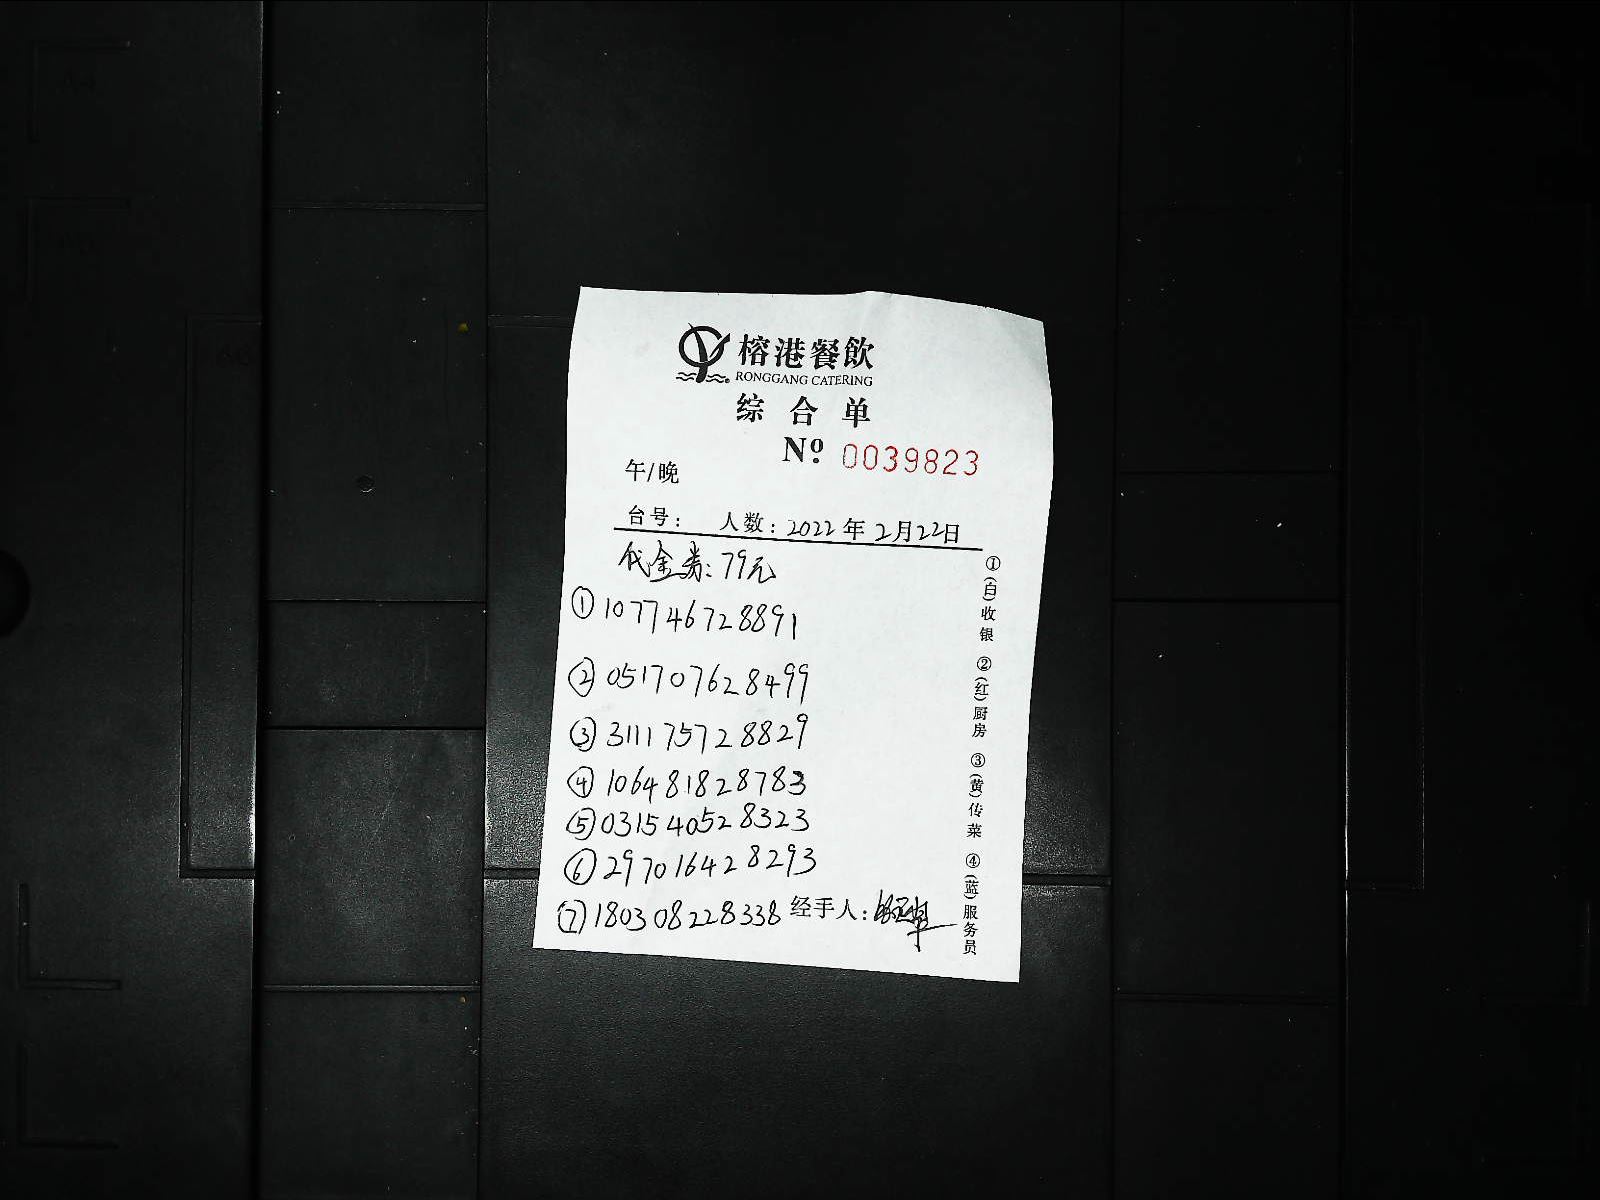 榕港餐飲
RONGGANG CATERING
综合单
Nº 0039823
午/晚
台号: 人数: 2022年2月22日
代金券: 79元
① 107746728891
② 051707628499
③ 311175728829
④ 106481828783
⑤ 031540528323
⑥ 297016428293
⑦ 180308228338 经手人:
①(白)收银 ②(红)厨房 ③(黄)传菜 ④(蓝)服务员